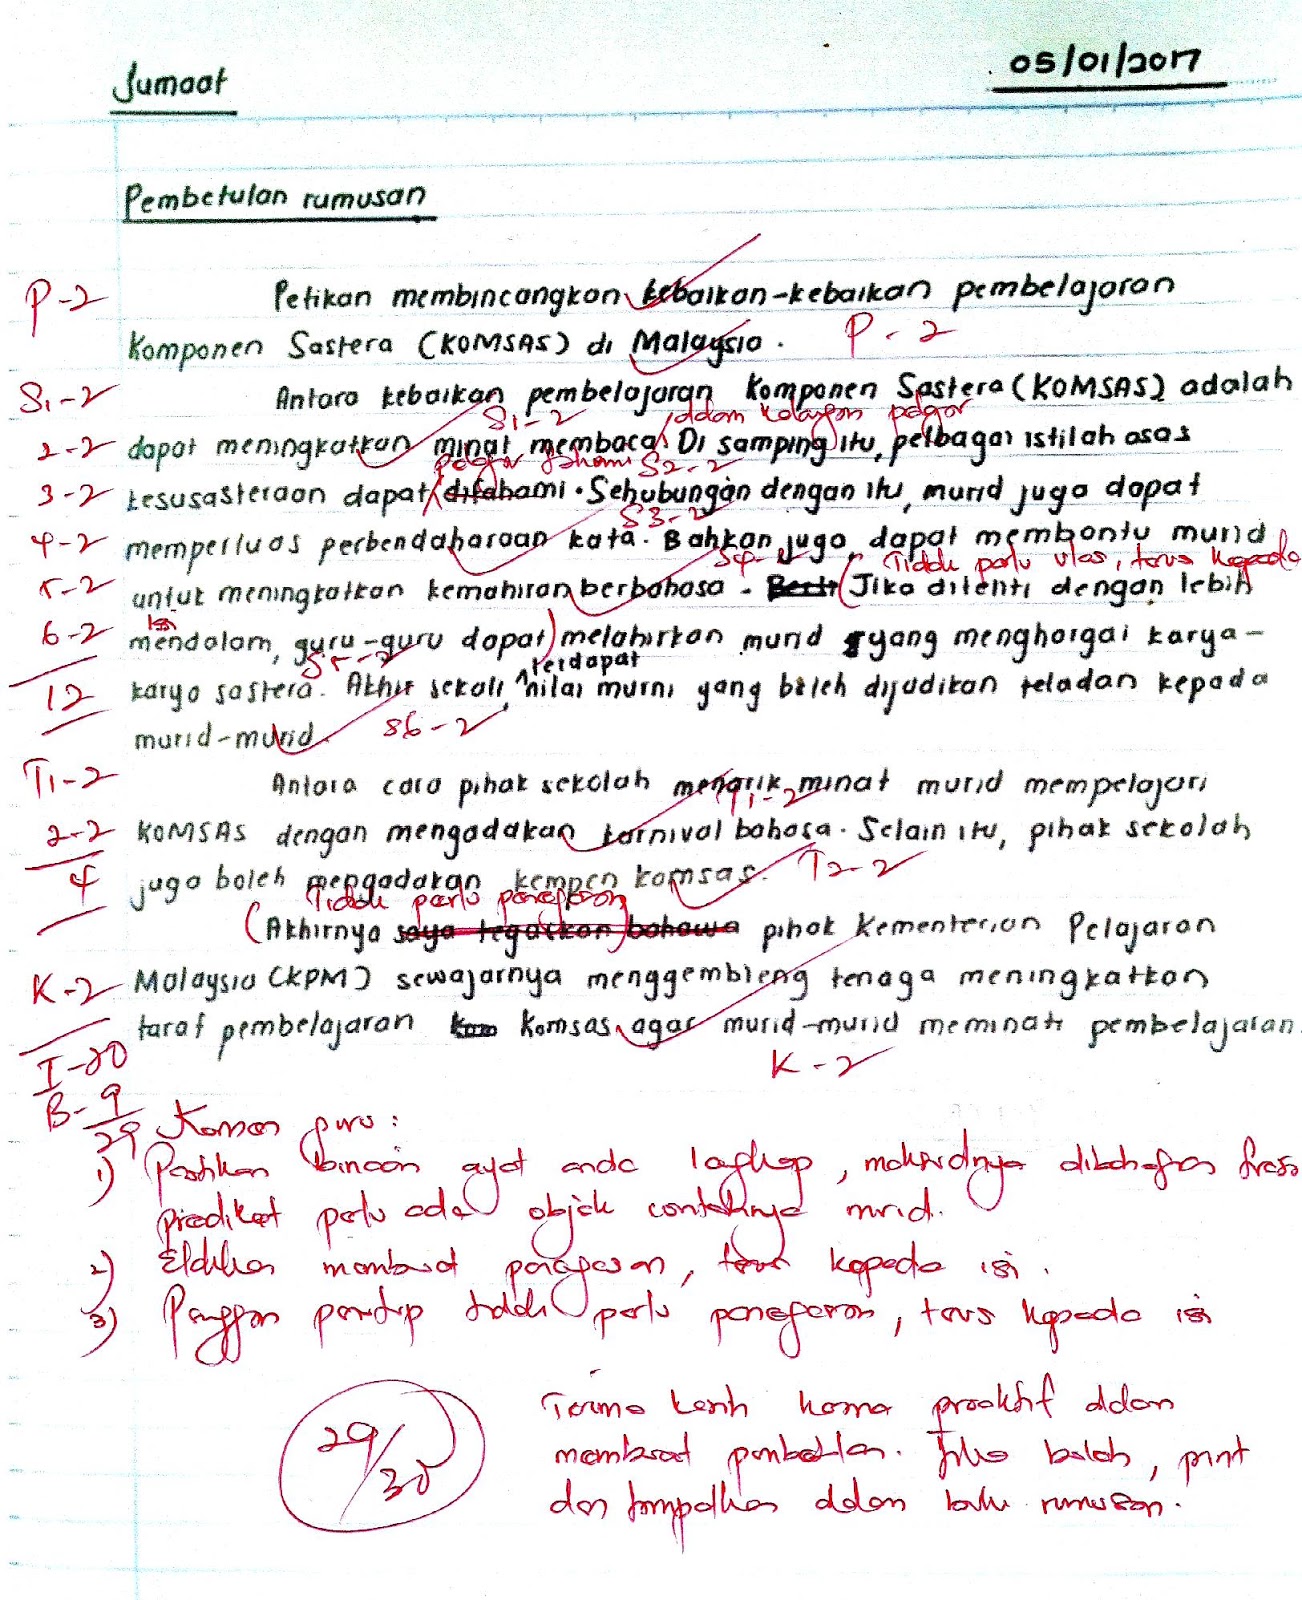 Jumaat
05/01/2017
Pembetulan rumusan
P-2
Petikan membincangkan kebaikan-kebaikan pembelajaran
Komponen Sastera (KOMSAS) di Malaysia.
P-2
S1-2
Antara kebaikan pembelajaran Komponen Sastera (KOMSAS) adalah
S1-2
dalam kalangan pelajar
2-2
dapat meningkatkan minat membaca. Di samping itu, pelbagai istilah asas
pelajar fahami S2-2
3-2
kesusasteraan dapat difahami. Sehubungan dengan itu, murid juga dapat
S3-2
4-2
memperluas perbendaharaan kata. Bahkan juga dapat membantu murid
S4-2
Tidak perlu ulas, terus kepada
5-2
untuk meningkatkan kemahiran berbahasa. Jika diteliti dengan lebih
isi
6-2
mendalam, guru-guru dapat) melahirkan murid yang menghargai karya-
S5-2
terdapat
12
karya sastera. Akhir sekali, nilai murni yang boleh dijadikan teladan kepada
murid-murid.
S6-2
T1-2
Antara cara pihak sekolah menarik minat murid mempelajari
T1-2
2-2
KOMSAS dengan mengadakan karnival bahasa. Selain itu, pihak sekolah
4
juga boleh mengadakan kempen komsas.
T2-2
Tidak perlu penegasan
(Akhirnya saya tegaskan) bahawa pihak Kementerian Pelajaran
K-2
Malaysia (KPM) sewajarnya menggembleng tenaga meningkatkan
taraf pembelajaran komsas agar murid-murid meminati pembelajaran.
K-2
I-20
B-9
29
Komen guru:
1) Pastikan binaan ayat anda lengkap, maksudnya dibahagian frasa
prediket perlu ada objek contohnya murid.
2) Elakkan membuat penegasan, terus kepada isi.
3) Panggan penutup tidak perlu penegasan, terus kepada isi
29/30
Terima kasih kerana proaktif dalam
membuat pembetulan. Jika boleh, print
dan tampalkan dalam buku rumusan.